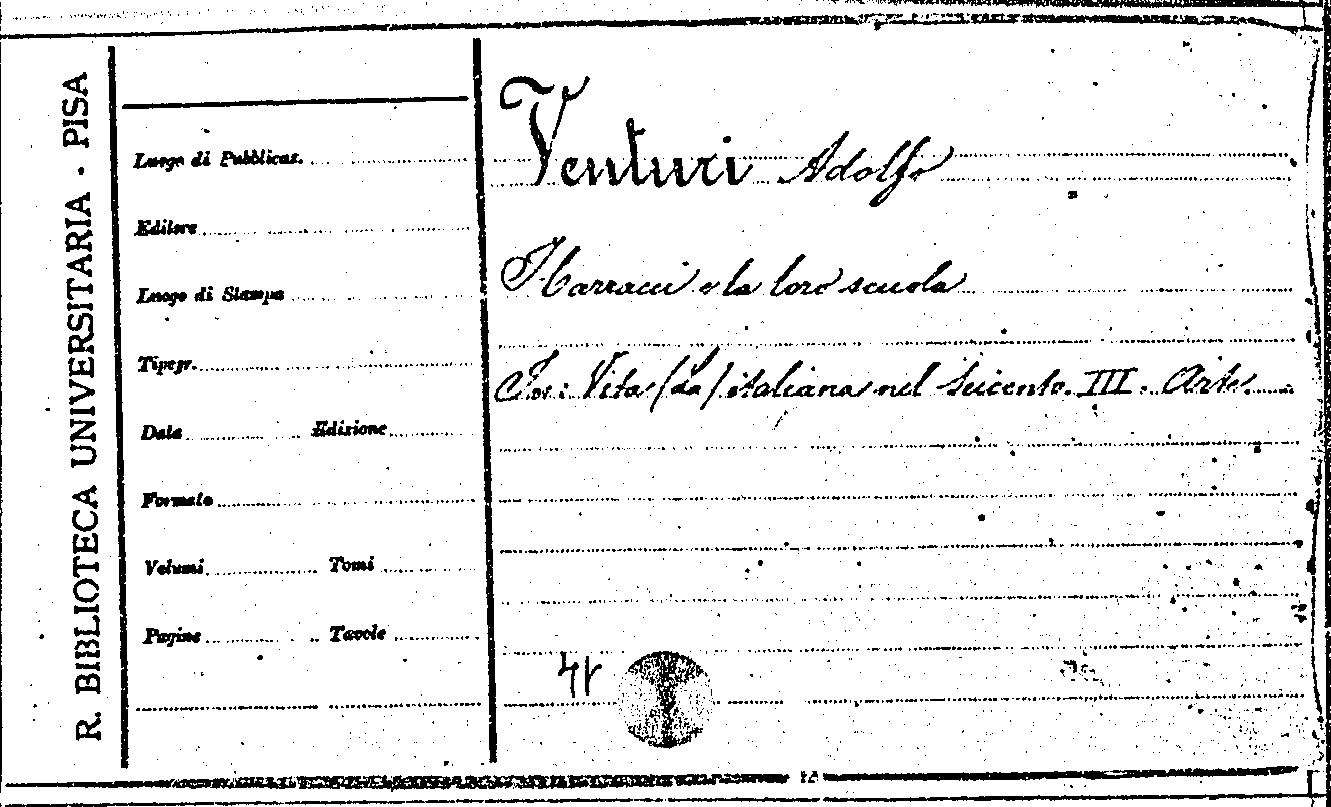 R. BIBLIOTECA UNIVERSITARIA - PISA
Luogo di Pubblicaz.
Editore
Luogo di Stampa
Tipogr.
Data Edizione
Formato
Volumi Tomi
Pagine Tavole
Venturi Adolfo
I Carracci e la loro scuola
In: Vita (La) italiana nel Seicento. III. Arte.